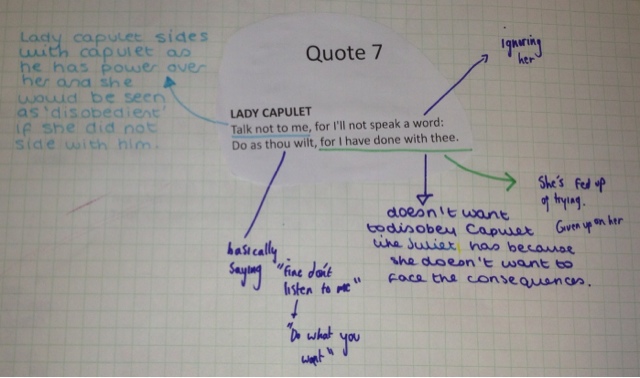 Quote 7
LADY CAPULET
Talk not to me, for I'll not speak a word:
Do as thou wilt, for I have done with thee.
Lady capulet sides
with capulet as
he has power over
her and she
would be seen
as 'disobedient'
if she did not
side with him.
ignoring
her
She's Fed up
of trying.
Given up on her
doesn't want
to disobey Capulet
like Juliet has because
she doesn't want to
face the consequences.
basically
saying
"fine don't
listen to me"
"Do what you
want"